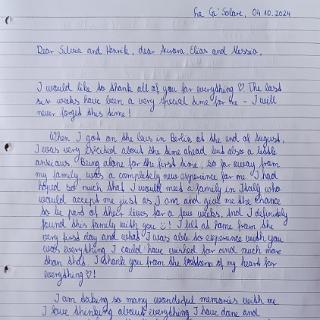 La Ca' Solare, 04.10.2024
Dear Silvia and Henrik, dear Aurora, Elias and Alessia,
I would like to thank all of you for everything ♡ The last
six weeks have been a very special time for me - I will
never forget this time!
When I got on the bus in Berlin at the end of August,
I was very excited about the time ahead but also a little
anxious. Being alone for the first time, so far away from
my family was a completely new experience for me. I had
hoped so much that I would meet a family in Italy who
would accept me just as I am and give me the chance
to be part of their lives for a few weeks. And I definitely
found this family with you ☺! I felt at home from the
very first day and what I was able to experience with you
was everything I could have wished for and much more
than that. I thank you from the bottom of my heart for
everything ♡!
I am taking so many wonderful memories with me.
I love thinking about everything I have done and